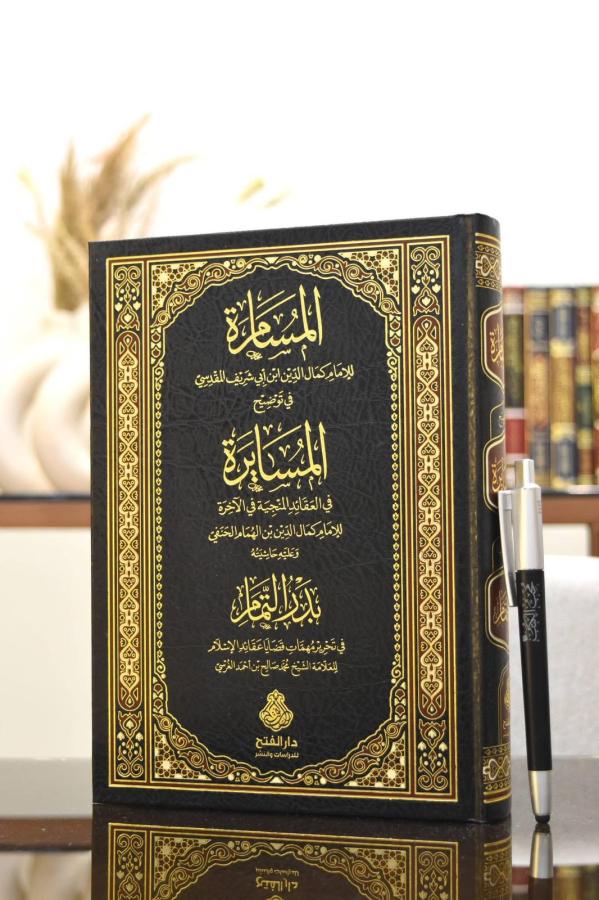 المُسَامَرة
للإمَام كمَال الدِّين ابن أبي شريف المقدسيّ
في تَوضِيح
المُسَايَرة
في العقَائد المنجيَة في الآخرَة
للإمَام كمَال الدِّين بن الهُمَام الحَنَفيّ
وَعَليْه حَاشِيَتُه
بَدْرُ التَّمَام
في تحرير مُهمّات قضَايا عقَائد الإسلام
للعَلّامَة الشّيخ محمّد صَالح بن أحمَد الغُرْسي
دار الفتح
للدراسات والنشر